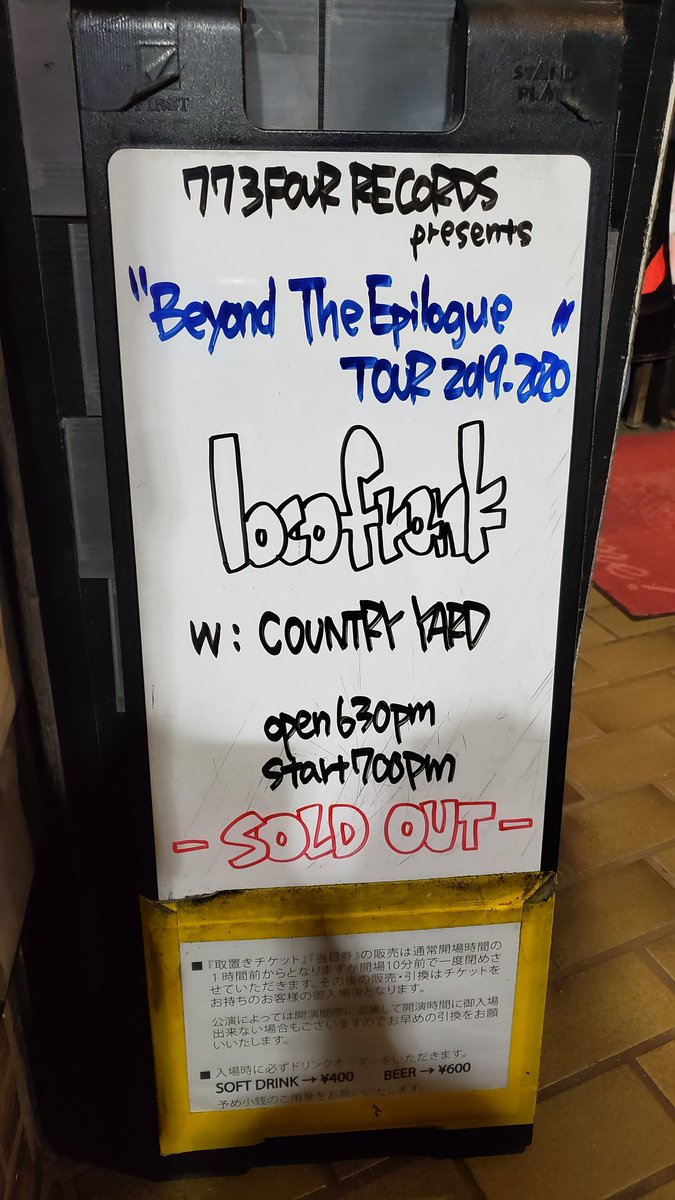 FIRST
STAND
773FOUR RECORDS
presents
"Beyond The Epilogue"
TOUR 2019-2020
locofrank
W: COUNTRY YARD
open 630pm
start 700pm
- SOLD OUT -
■『取置きチケット』『当日券』の販売は通常開場時間の
1時間前からとなりますが開場10分前で一度閉めさ
せていただきます。その後の販売・引換はチケットを
お持ちのお客様の御入場後となります。
公演によっては開演間際に混雑して開演時間に御入場
出来ない場合もございますのでお早めの引換をお願
いいたします。
■入場時に必ずドリンクオーダーをいただきます。
SOFT DRINK → ¥400 BEER → ¥600
予め小銭のご用意をお願いいたします。